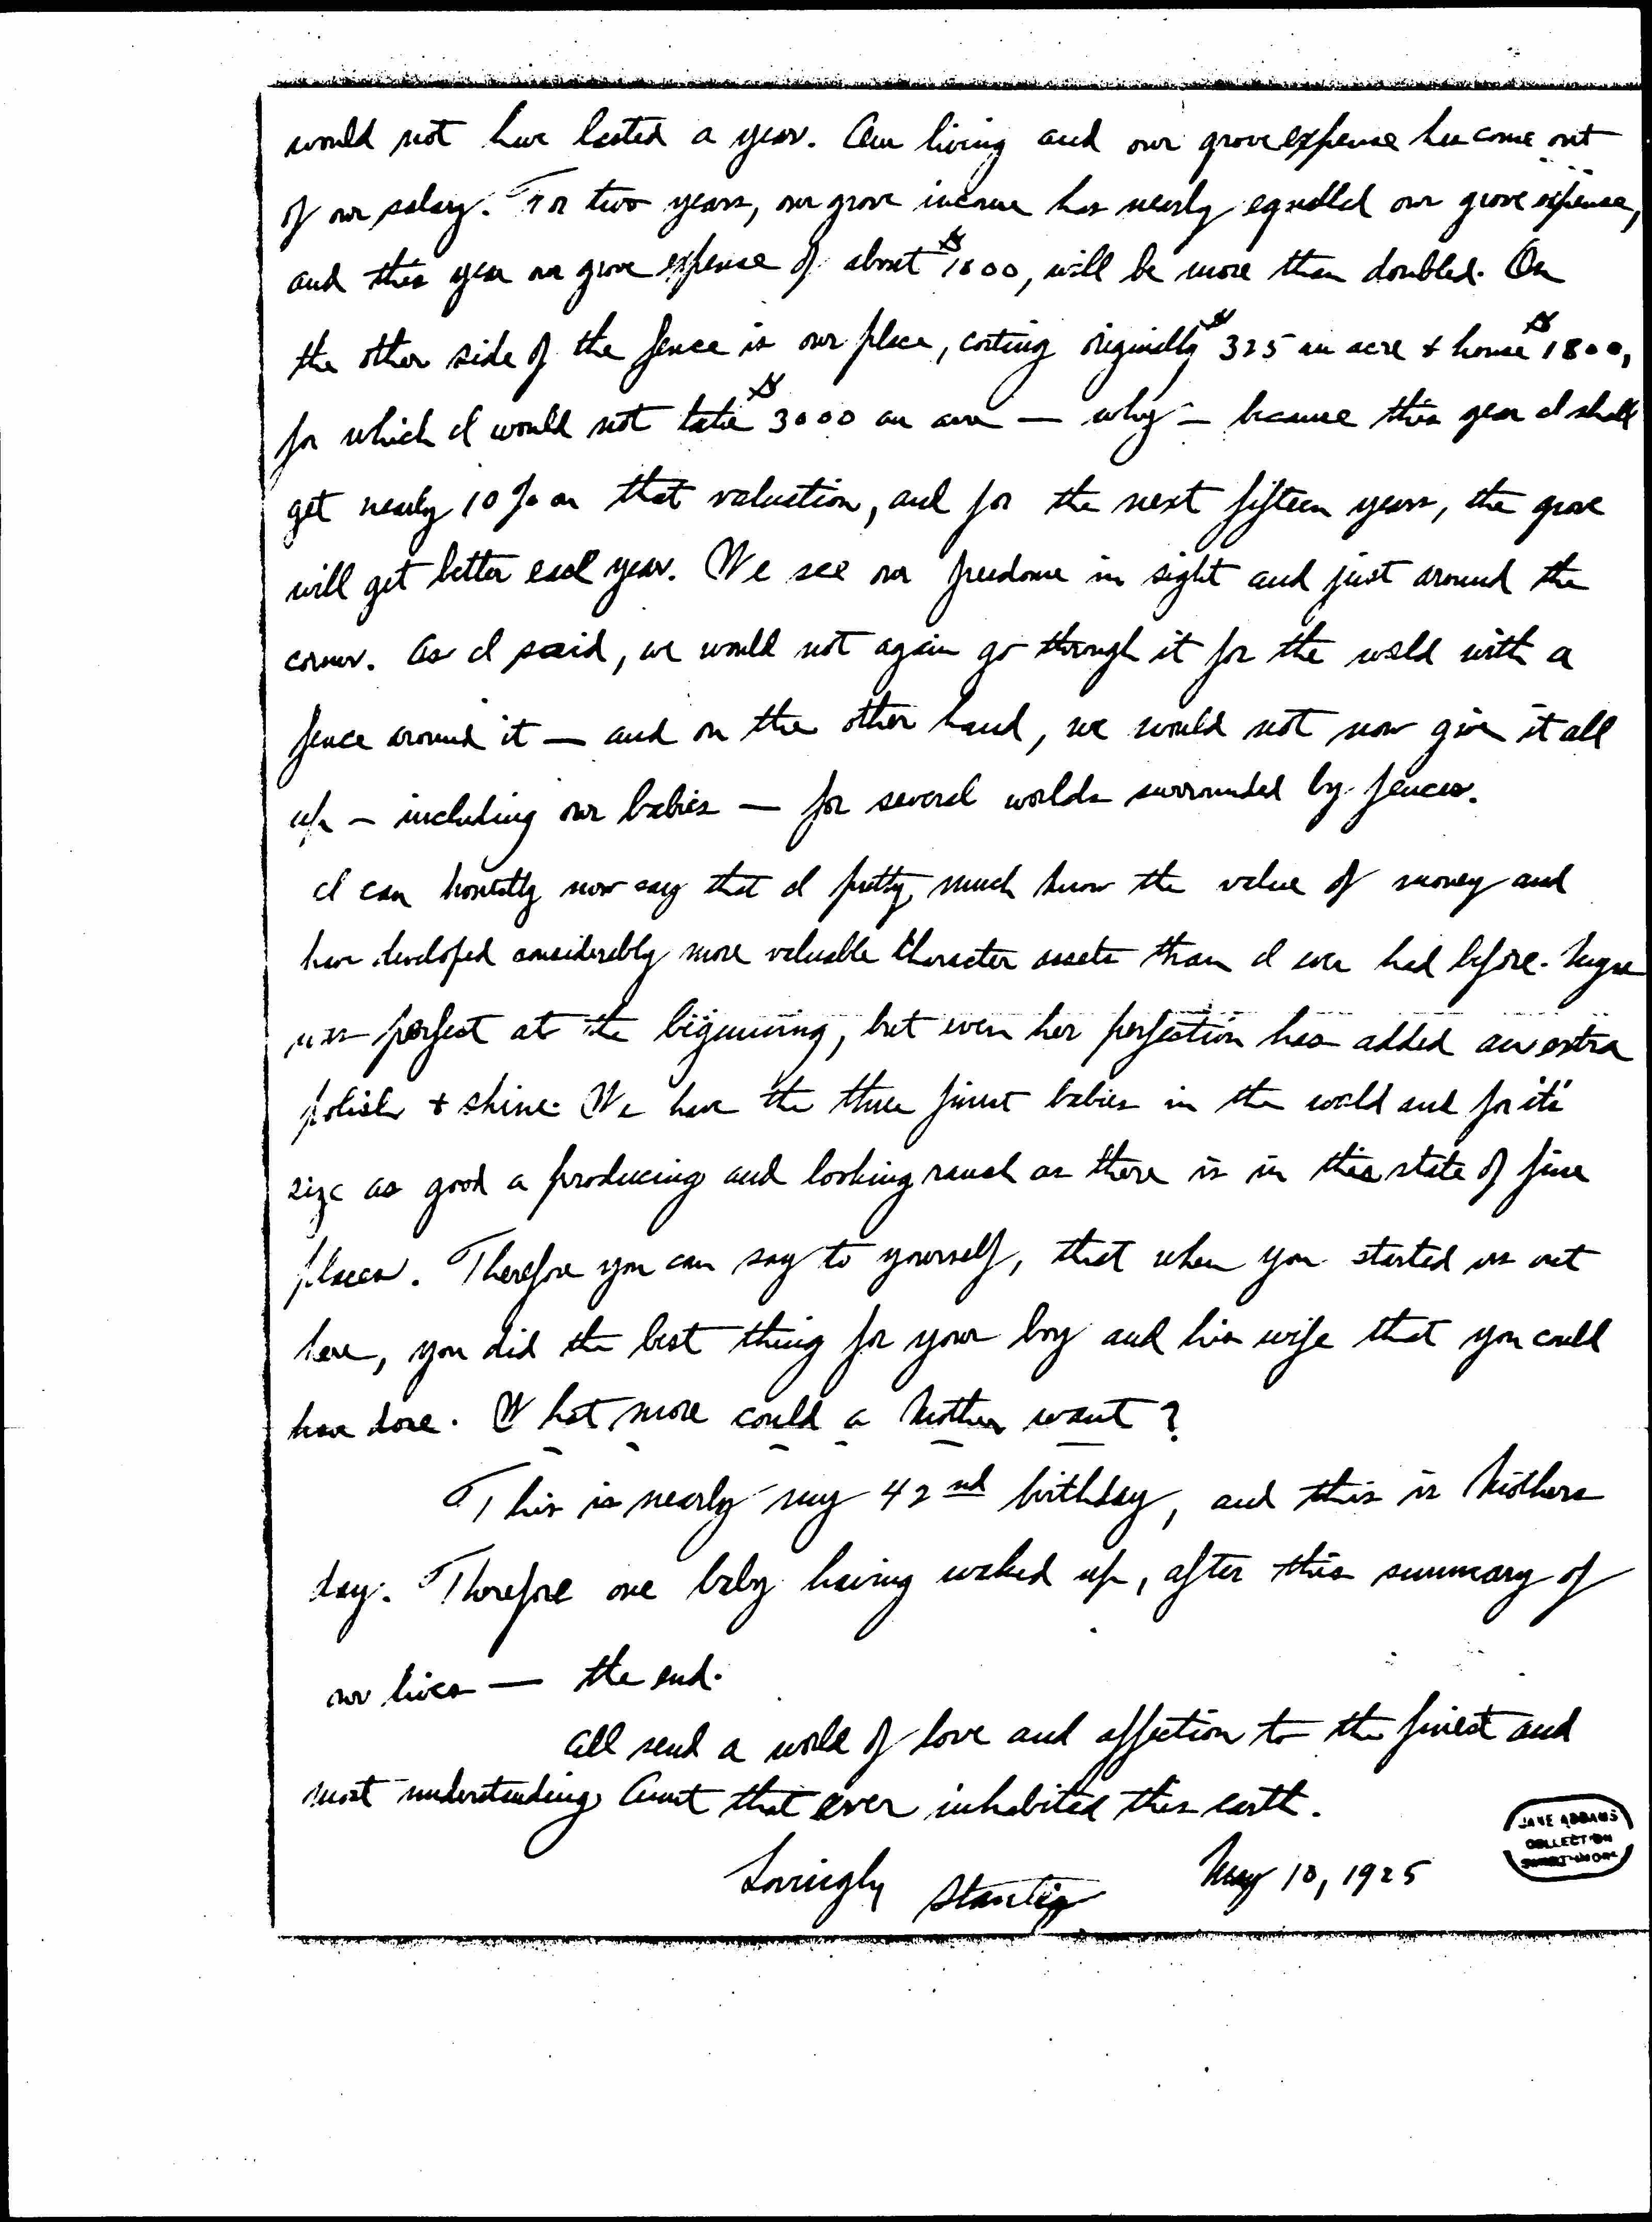 would not have lasted a year. Our living and our grove expense has come out
of our salary. For two years, our grove income has nearly equalled our grove expense,
and this year our grove expense of about $1800, will be more than doubled. On
the other side of the fence is our place, costing originally $325 an acre & house $1800,
for which I would not take $3000 an acre — why — because this year I shall
get nearly 10% on that valuation, and for the next fifteen years, the grove
will get better each year. We see our freedome in sight and just around the
corner. As I said, we would not again go through it for the world with a
fence around it — and on the other hand, we would not now give it all
up — including our babies — for several worlds surrounded by fences.
I can honestly now say that I pretty much know the value of money and
have developed considerably more valuable character assets than I ever had before. Myra
was perfect at the biginning, but even her perfection has added an extra
polish & shine. We have the three finest babies in the world and for it's
size as good a producing and looking ranch as there is in this state of fine
places. Therefore you can say to yourself, that when you started us out
here, you did the best thing for your boy and his wife that you could
have done. What more could a Mother want?
This is nearly my 42nd birthday, and this is Mothers
day. Therefore one baby having waked up, after this summary of
our lives — the end.
All send a world of love and affection to the finest and
most understanding Aunt that ever inhabited this earth.
Lovingly Stanley May 10, 1925
JANE ADDAMS
COLLECTION
SWARTHMORE